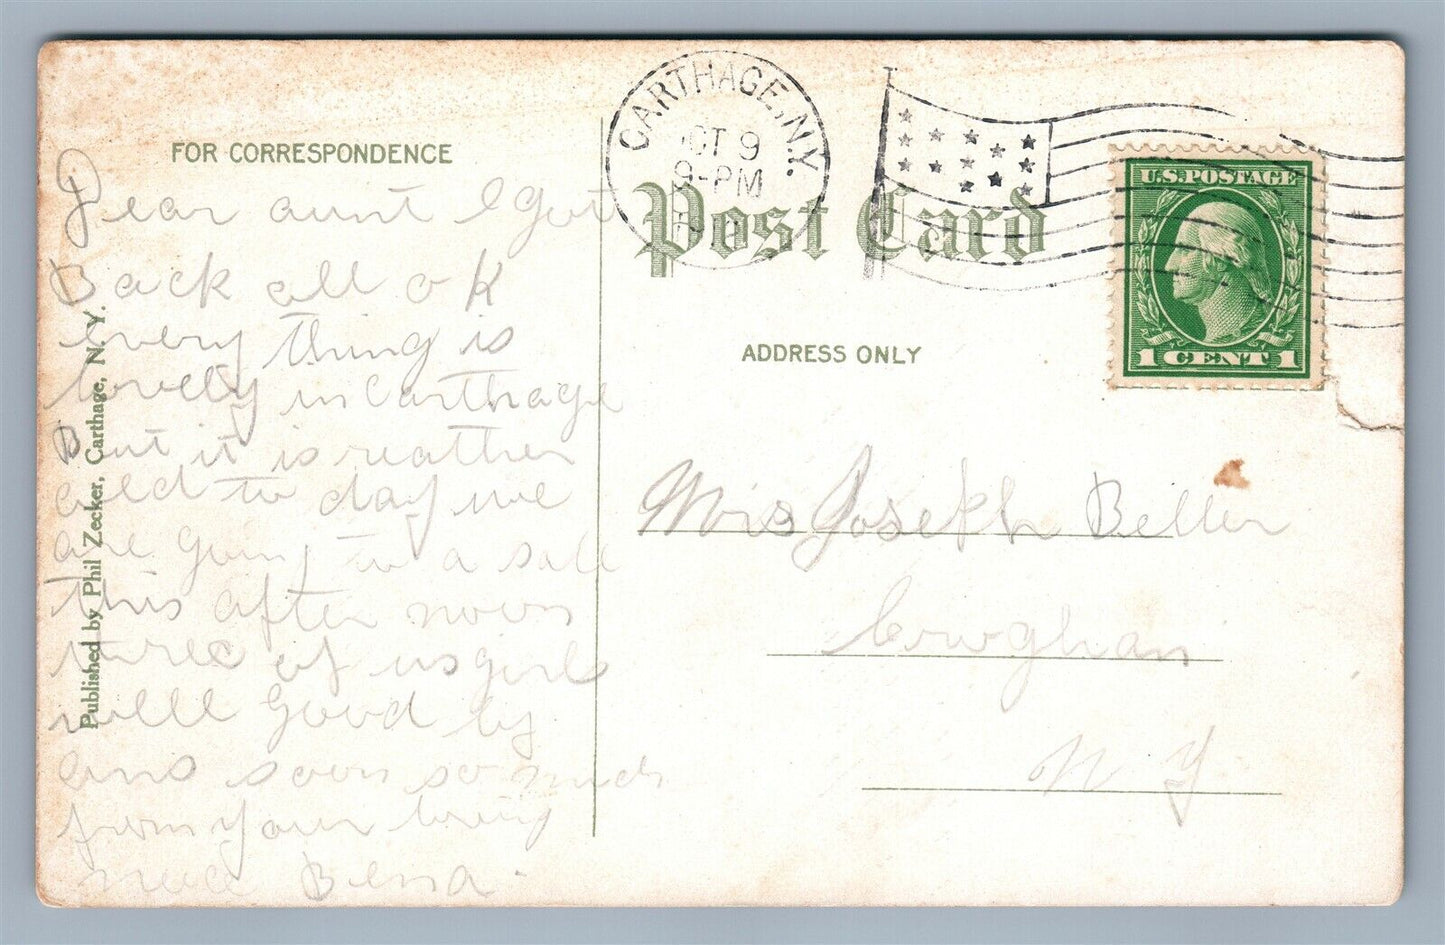 FOR CORRESPONDENCE
Dear aunt I got
Back all o K
every thing is
lovely in Carthage
But it is reather
cold to day we
are going to a sale
this after noon
three of us girls
well good by
ans soon so much
from your loving
niece Bena.
Published by Phil Zecker, Carthage, N. Y.
CARTHAGE, N.Y.
OCT 9
9-PM
Post Card
U.S. POSTAGE
1 CENT 1
ADDRESS ONLY
Mrs Joseph Beller
Crowghan
N Y